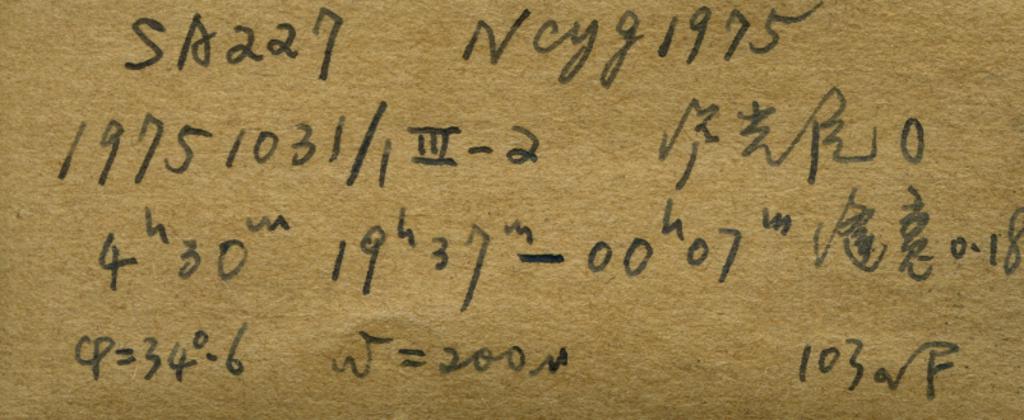 SA227 N Cyg 1975
19751031/1 III-2 0
4ʰ30ᵐ 19ʰ37ᵐ-00ʰ07ᵐ 缝宽0.18
φ=34°.6 w=200μ 103aF